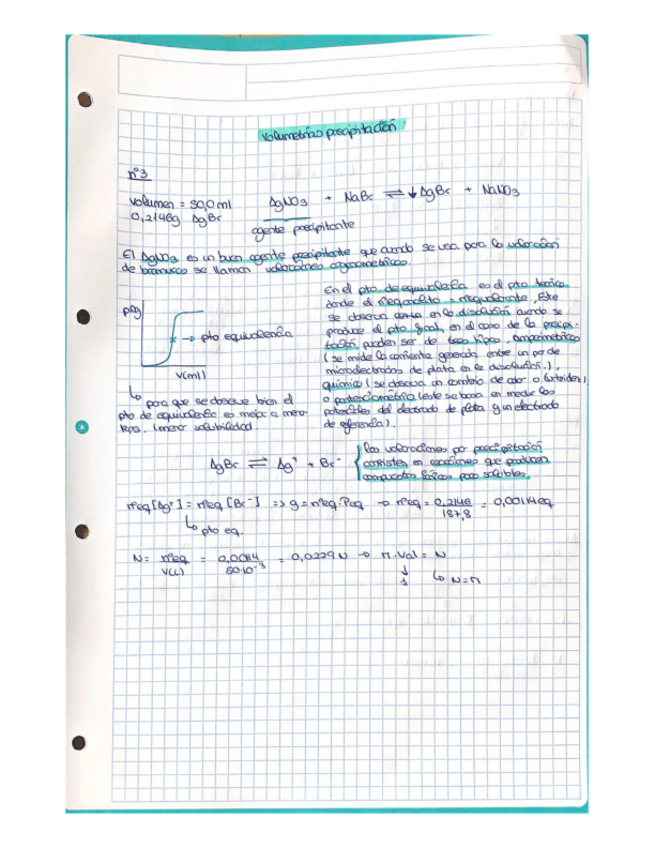 Volumetrías precipitación
nº3
volumen = 50,0 ml
0,2146g AgBr
AgNO3 + NaBr ⇌ ↓AgBr + NaNO3
agente precipitante
El AgNO3 es un buen agente precipitante que cuando se usa para la valoración
de bromuros se llaman valoraciones argenométricas.
En el pto de equivalencia es el pto teórico
donde el nºeq analito = nºeq valorante. Este
se observa en la disolución cuando se
produce el pto final, en el caso de la precipi-
tación pueden ser de tres tipos, amperimétricos
(se mide la corriente generada entre un par de
microelectrodos de plata en la disolución.),
químico (se observa un cambio de color o turbidez)
o potenciometría (este se basa en medir los
potenciales del electrodo de plata y un electrodo
de referencia).
pAg
→ pto equivalencia
V(ml)
↳ para que se observe bien el
pto de equivalencia es mejor a menor
Kps. (menor solubilidad).
AgBr ⇌ Ag⁺ + Br⁻
las valoraciones por precipitación
consisten en reacciones que producen
compuestos iónicos poco solubles.
nºeq [Ag⁺] = nºeq [Br⁻] => g = nºeq · Peq → nºeq = 0,2146/187,8 = 0,00114 eq
↳ pto eq.
N = nºeq/V(L) = 0,00114/50·10⁻³ = 0,0229 N → M · Val = N
↓
1
↳ N = M